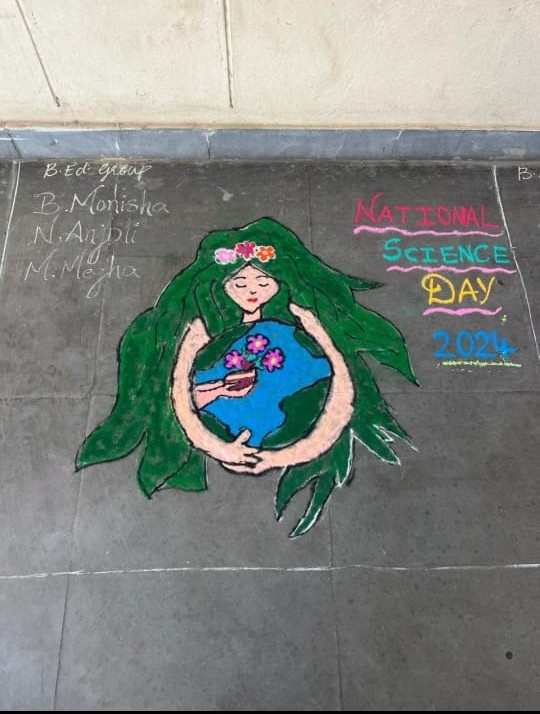 B.Ed. group
B. Monisha
N. Anjali
M. Megha
NATIONAL
SCIENCE
DAY
2024
B.